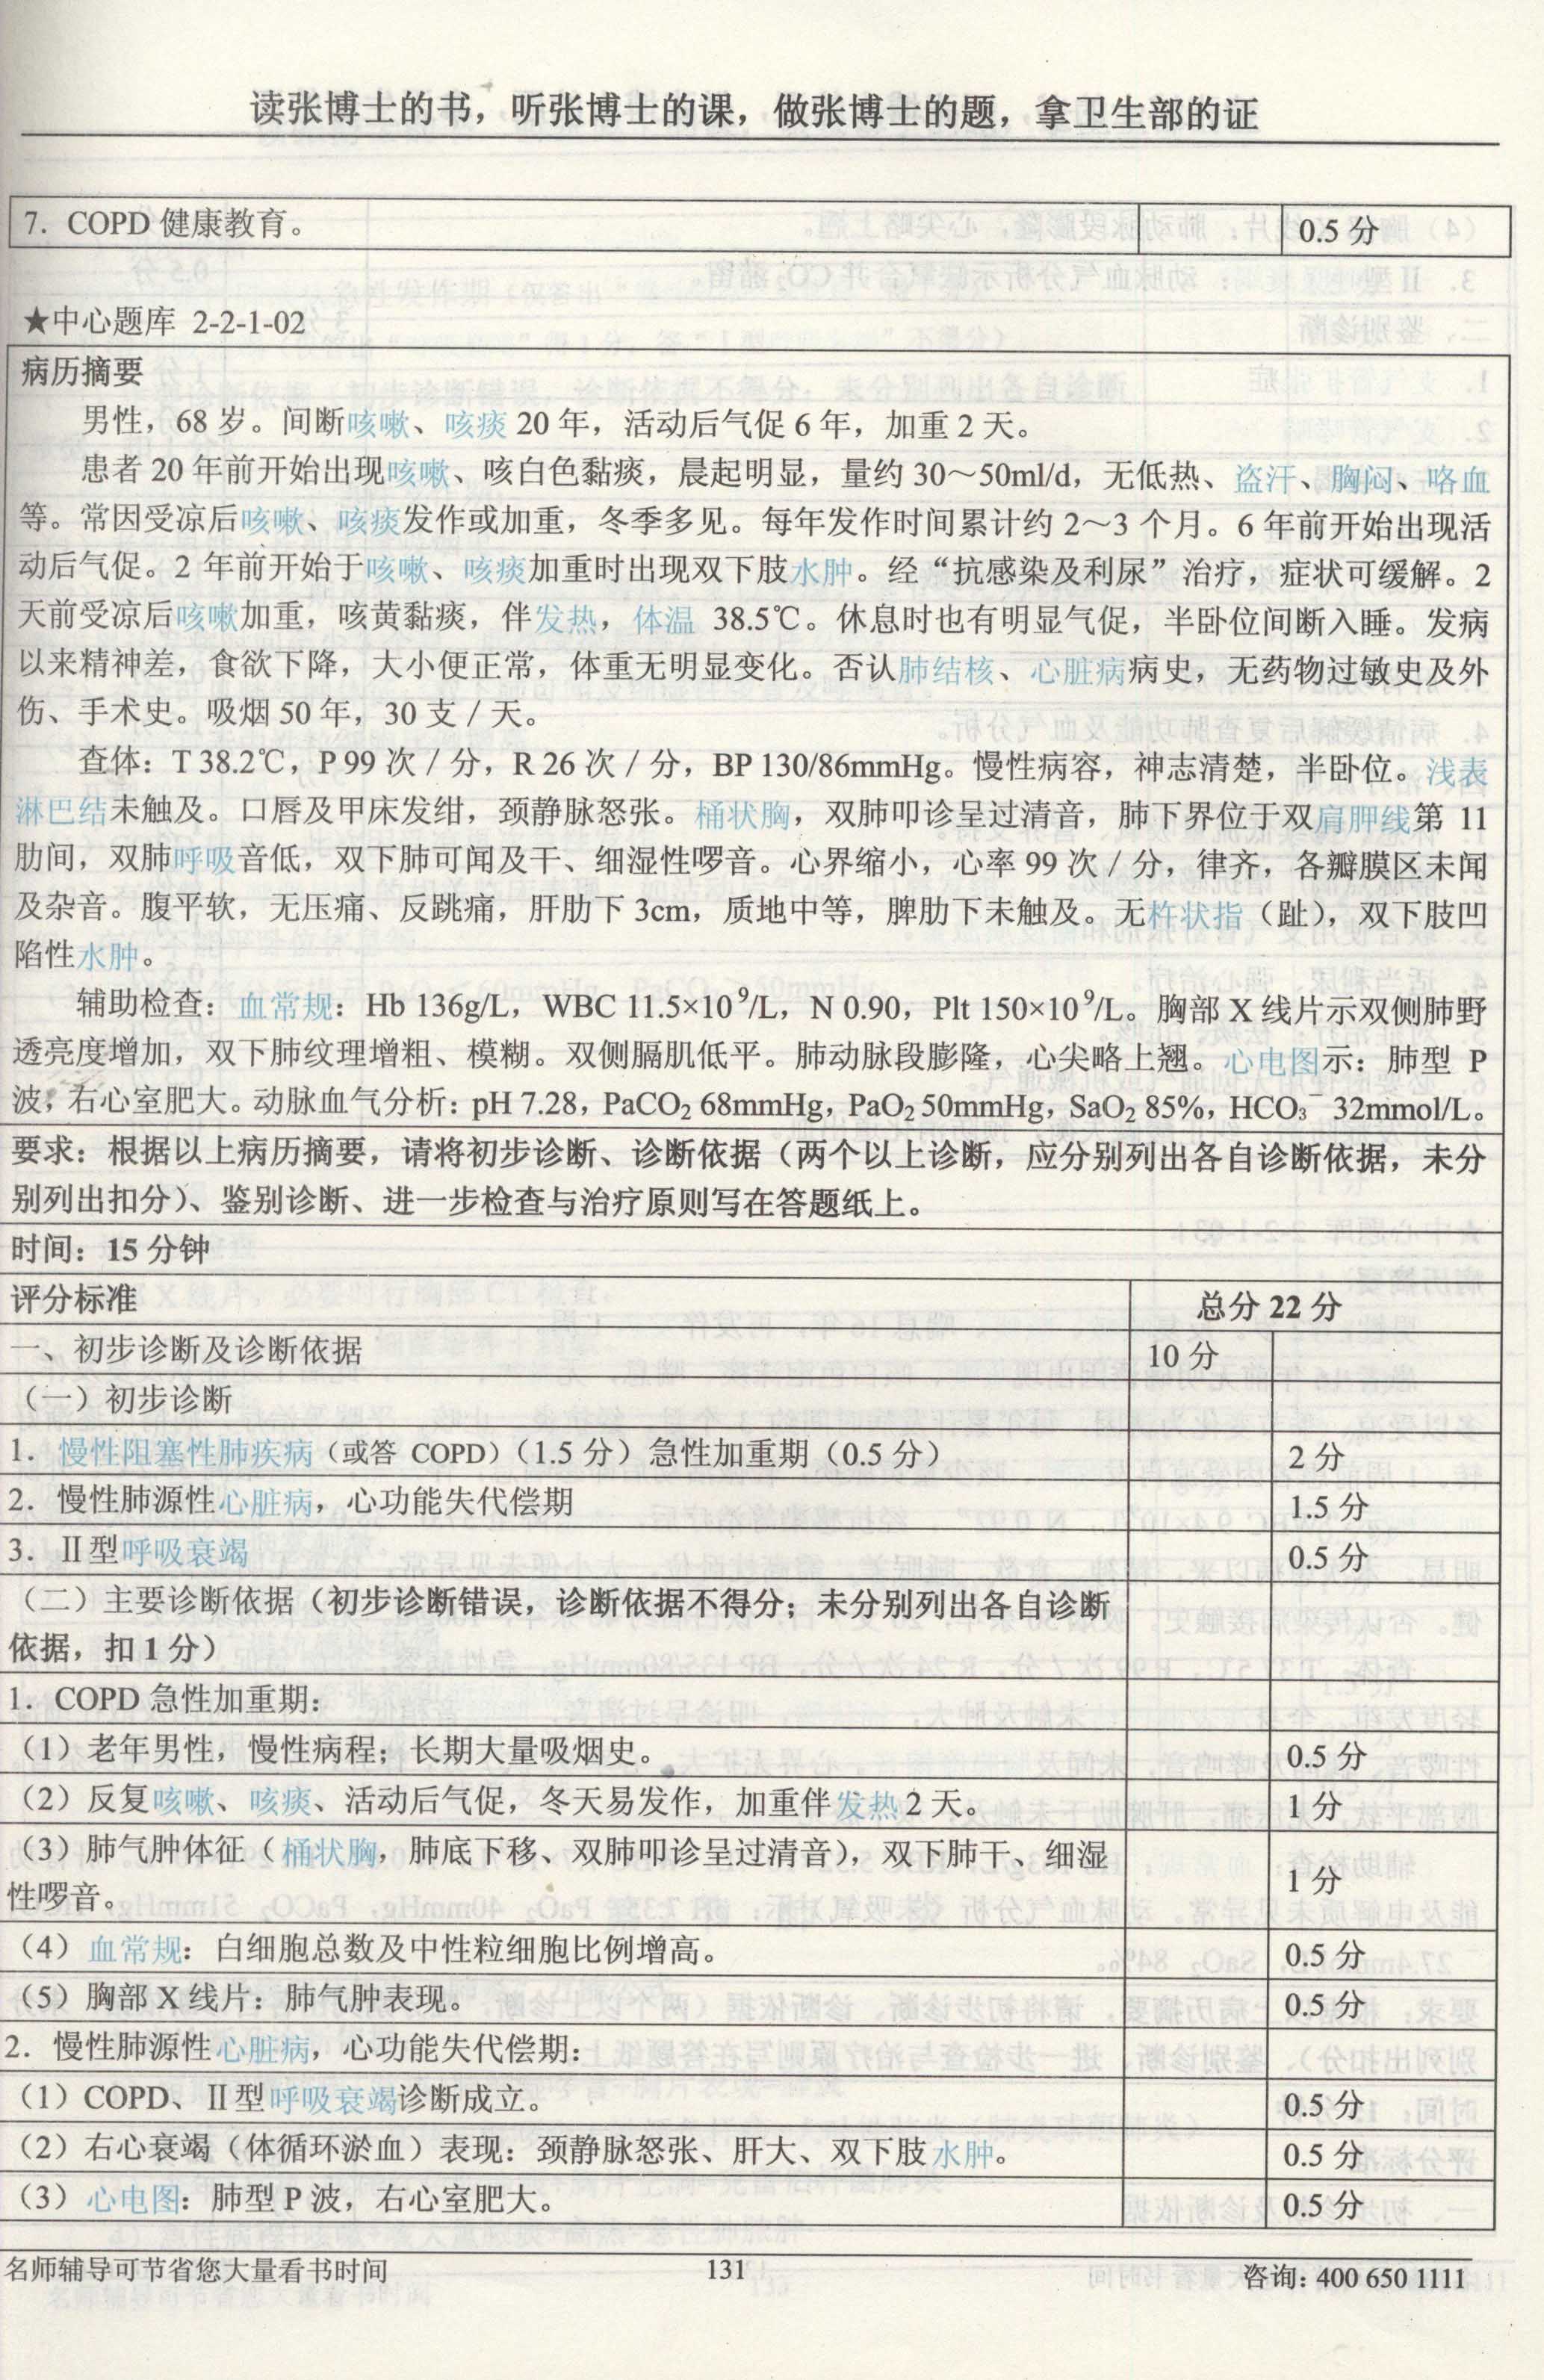 读张博士的书，听张博士的课，做张博士的题，拿卫生部的证
7．COPD 健康教育。 0.5 分
★中心题库 2-2-1-02
病历摘要
男性，68 岁。间断咳嗽、咳痰 20 年，活动后气促 6 年，加重 2 天。
患者 20 年前开始出现咳嗽、咳白色黏痰，晨起明显，量约 30～50ml/d，无低热、盗汗、胸闷、咯血
等。常因受凉后咳嗽、咳痰发作或加重，冬季多见。每年发作时间累计约 2～3 个月。6 年前开始出现活
动后气促。2 年前开始于咳嗽、咳痰加重时出现双下肢水肿。经“抗感染及利尿”治疗，症状可缓解。2
天前受凉后咳嗽加重，咳黄黏痰，伴发热，体温 38.5℃。休息时也有明显气促，半卧位间断入睡。发病
以来精神差，食欲下降，大小便正常，体重无明显变化。否认肺结核、心脏病病史，无药物过敏史及外
伤、手术史。吸烟 50 年，30 支／天。
查体：T 38.2℃，P 99 次／分，R 26 次／分，BP 130/86mmHg。慢性病容，神志清楚，半卧位。浅表
淋巴结未触及。口唇及甲床发绀，颈静脉怒张。桶状胸，双肺叩诊呈过清音，肺下界位于双肩胛线第 11
肋间，双肺呼吸音低，双下肺可闻及干、细湿性啰音。心界缩小，心率 99 次／分，律齐，各瓣膜区未闻
及杂音。腹平软，无压痛、反跳痛，肝肋下 3cm，质地中等，脾肋下未触及。无杵状指（趾），双下肢凹
陷性水肿。
辅助检查：血常规：Hb 136g/L，WBC 11.5×10⁹/L，N 0.90，Plt 150×10⁹/L。胸部 X 线片示双侧肺野
透亮度增加，双下肺纹理增粗、模糊。双侧膈肌低平。肺动脉段膨隆，心尖略上翘。心电图示：肺型 P
波，右心室肥大。动脉血气分析：pH 7.28，PaCO₂ 68mmHg，PaO₂ 50mmHg，SaO₂ 85%，HCO₃⁻ 32mmol/L。
要求：根据以上病历摘要，请将初步诊断、诊断依据（两个以上诊断，应分别列出各自诊断依据，未分
别列出扣分）、鉴别诊断、进一步检查与治疗原则写在答题纸上。
时间：15 分钟
评分标准 总分 22 分
一、初步诊断及诊断依据 10 分
（一）初步诊断
1．慢性阻塞性肺疾病（或答 COPD）（1.5 分）急性加重期（0.5 分） 2 分
2．慢性肺源性心脏病，心功能失代偿期 1.5 分
3．Ⅱ型呼吸衰竭 0.5 分
（二）主要诊断依据（初步诊断错误，诊断依据不得分；未分别列出各自诊断
依据，扣 1 分）
1．COPD 急性加重期：
（1）老年男性，慢性病程；长期大量吸烟史。 0.5 分
（2）反复咳嗽、咳痰、活动后气促，冬天易发作，加重伴发热 2 天。 1 分
（3）肺气肿体征（桶状胸，肺底下移、双肺叩诊呈过清音），双下肺干、细湿
性啰音。 1 分
（4）血常规：白细胞总数及中性粒细胞比例增高。 0.5 分
（5）胸部 X 线片：肺气肿表现。 0.5 分
2．慢性肺源性心脏病，心功能失代偿期：
（1）COPD、Ⅱ型呼吸衰竭诊断成立。 0.5 分
（2）右心衰竭（体循环淤血）表现：颈静脉怒张、肝大、双下肢水肿。 0.5 分
（3）心电图：肺型 P 波，右心室肥大。 0.5 分
名师辅导可节省您大量看书时间 131 咨询：400 650 1111